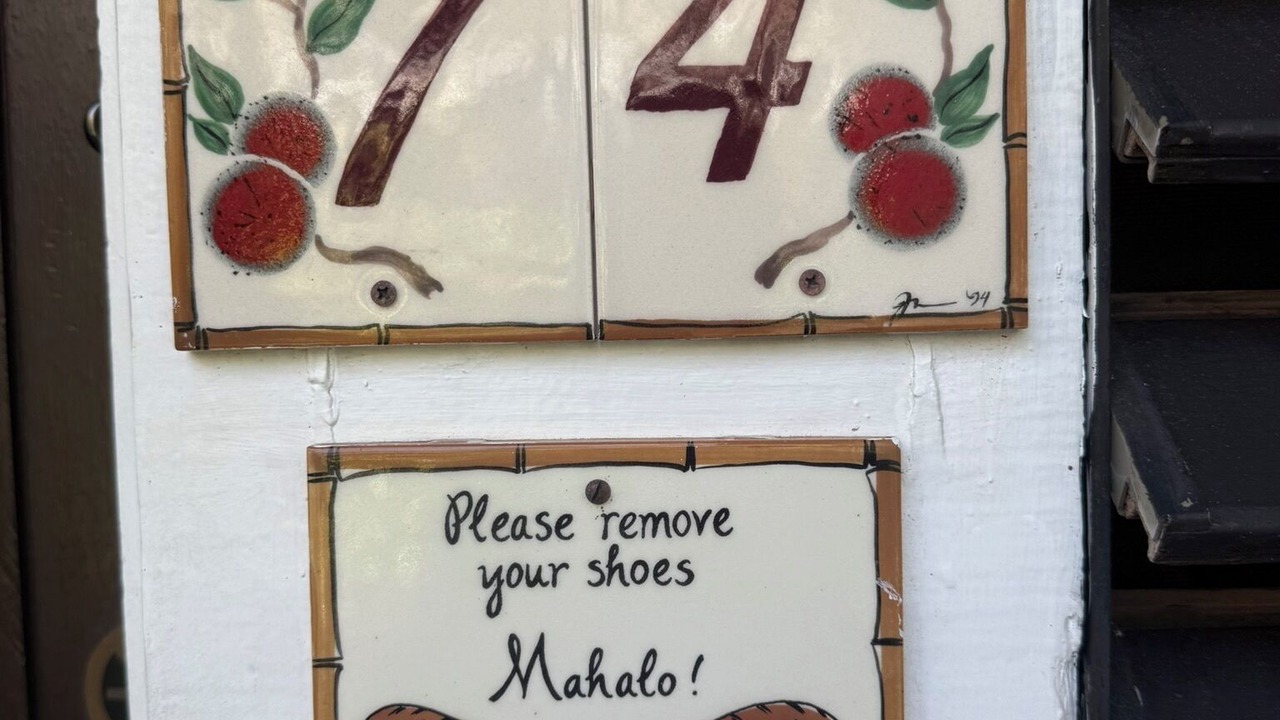 74
'94
Please remove
your shoes
Mahalo!